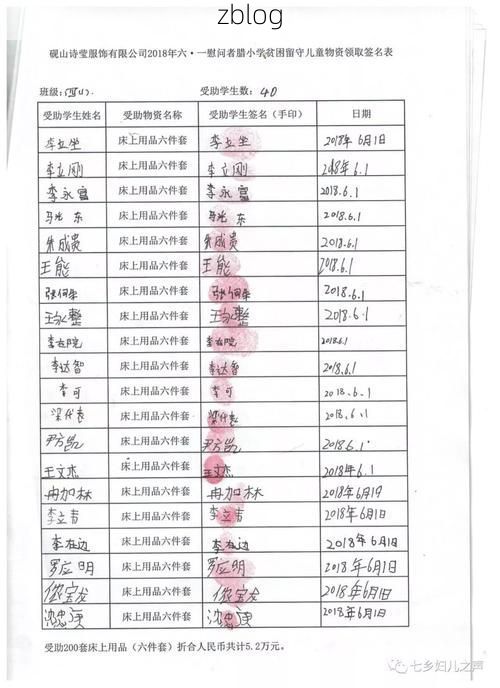 zblog
砚山诗莹服饰有限公司2018年六·一慰问者腊小学贫困留守儿童物资领取签名表
班级：四(1) 受助学生数：40
受助学生姓名 受助物资名称 受助学生签名（手印） 日期
李立坐 床上用品六件套 李立坐 2018年6月1日
李立刚 床上用品六件套 李立刚 2018年6.1
李永富 床上用品六件套 李永富 2018.6.1
马光东 床上用品六件套 马光东 2018.6.1
朱成贵 床上用品六件套 朱成贵 2018.6.1
王能 床上用品六件套 王能 2018.6.1
床上用品六件套 2018.6.1
王永整 床上用品六件套 王永整 2018.6.1
李在院 床上用品六件套 李在院 2018.6.1
李达智 床上用品六件套 李达智 2018.6.1
李可 床上用品六件套 李可 2018.6.1
梁代表 床上用品六件套 梁代表 2018.6.1
尹方凯 床上用品六件套 尹方凯 2018.6.1
王文杰 床上用品六件套 王文杰 2018年6.1
冉加林 床上用品六件套 冉加林 2018年6月19
李立青 床上用品六件套 李立青 2018年6月1日
李在边 床上用品六件套 李在边 2018年6月1日
罗应明 床上用品六件套 罗应明 2018年6月1日
侬宝龙 床上用品六件套 侬宝龙 2018年6月1日
沈忠 床上用品六件套 沈忠 2018年6月1日
受助200套床上用品（六件套）折合人民币共计5.2万元。
七乡妇儿之声